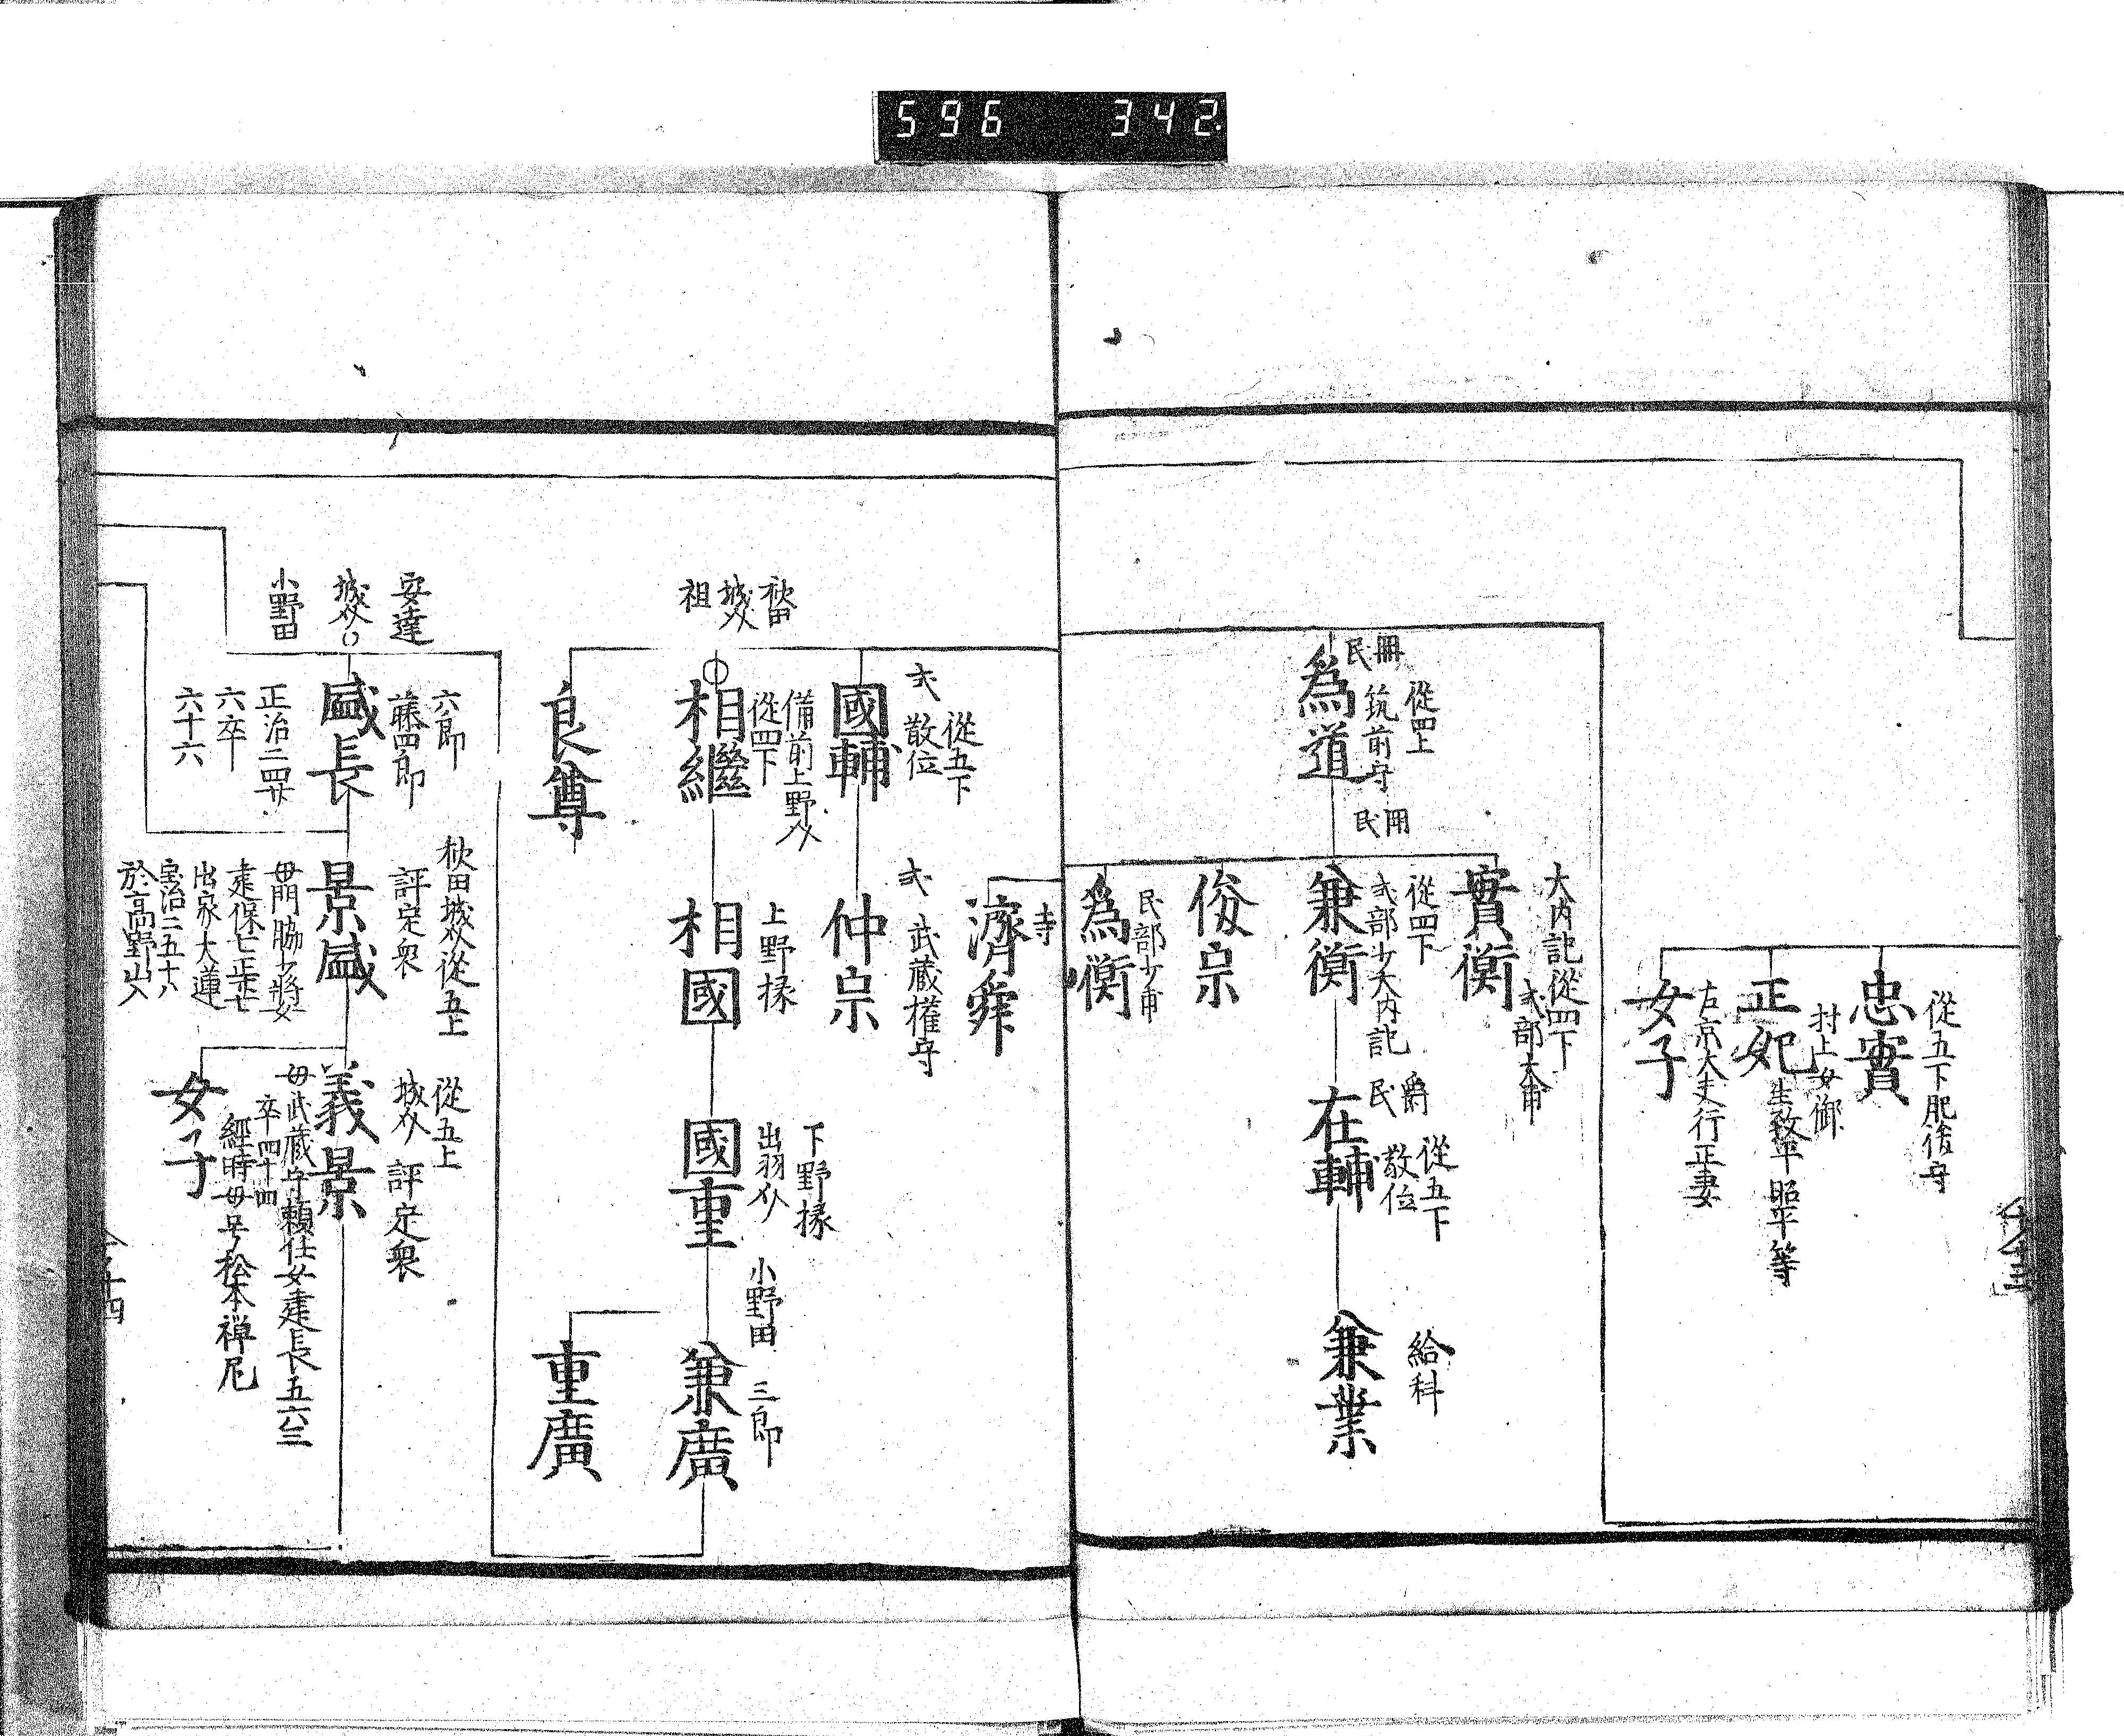 596 342
從五下肥後守
忠實
村上女御
生致平 昭平等
正妃
右京大丈行正妻
女子
大内記從四下
式部大甫
實衡
民冊
從四上
筑前守
爲道
民冊
從四下
式部少大内記
兼衡
爵
民
從五下
散位
在輔
給料
兼業
俊宗
民部少甫
爲衡
寺
濟舜
式
從五下
散位
國輔
式
武藏權守
仲宗
秋田
城介
祖
備前上野介
從四下
相繼
上野掾
相國
下野掾
出羽介
國重
小野田 三郎
兼廣
重廣
良尊
安達
城介
小野田
六郎
藤四郎
盛長
正治二四廿
六卒
六十六
秋田城介從五上
評定衆
景盛
母
出家大蓮
宝治二五十八
於高野山入
從五上
城介 評定衆
義景
母武藏守頼仕女建長五六三
卒四十四
女子
經時母号松本禅尼